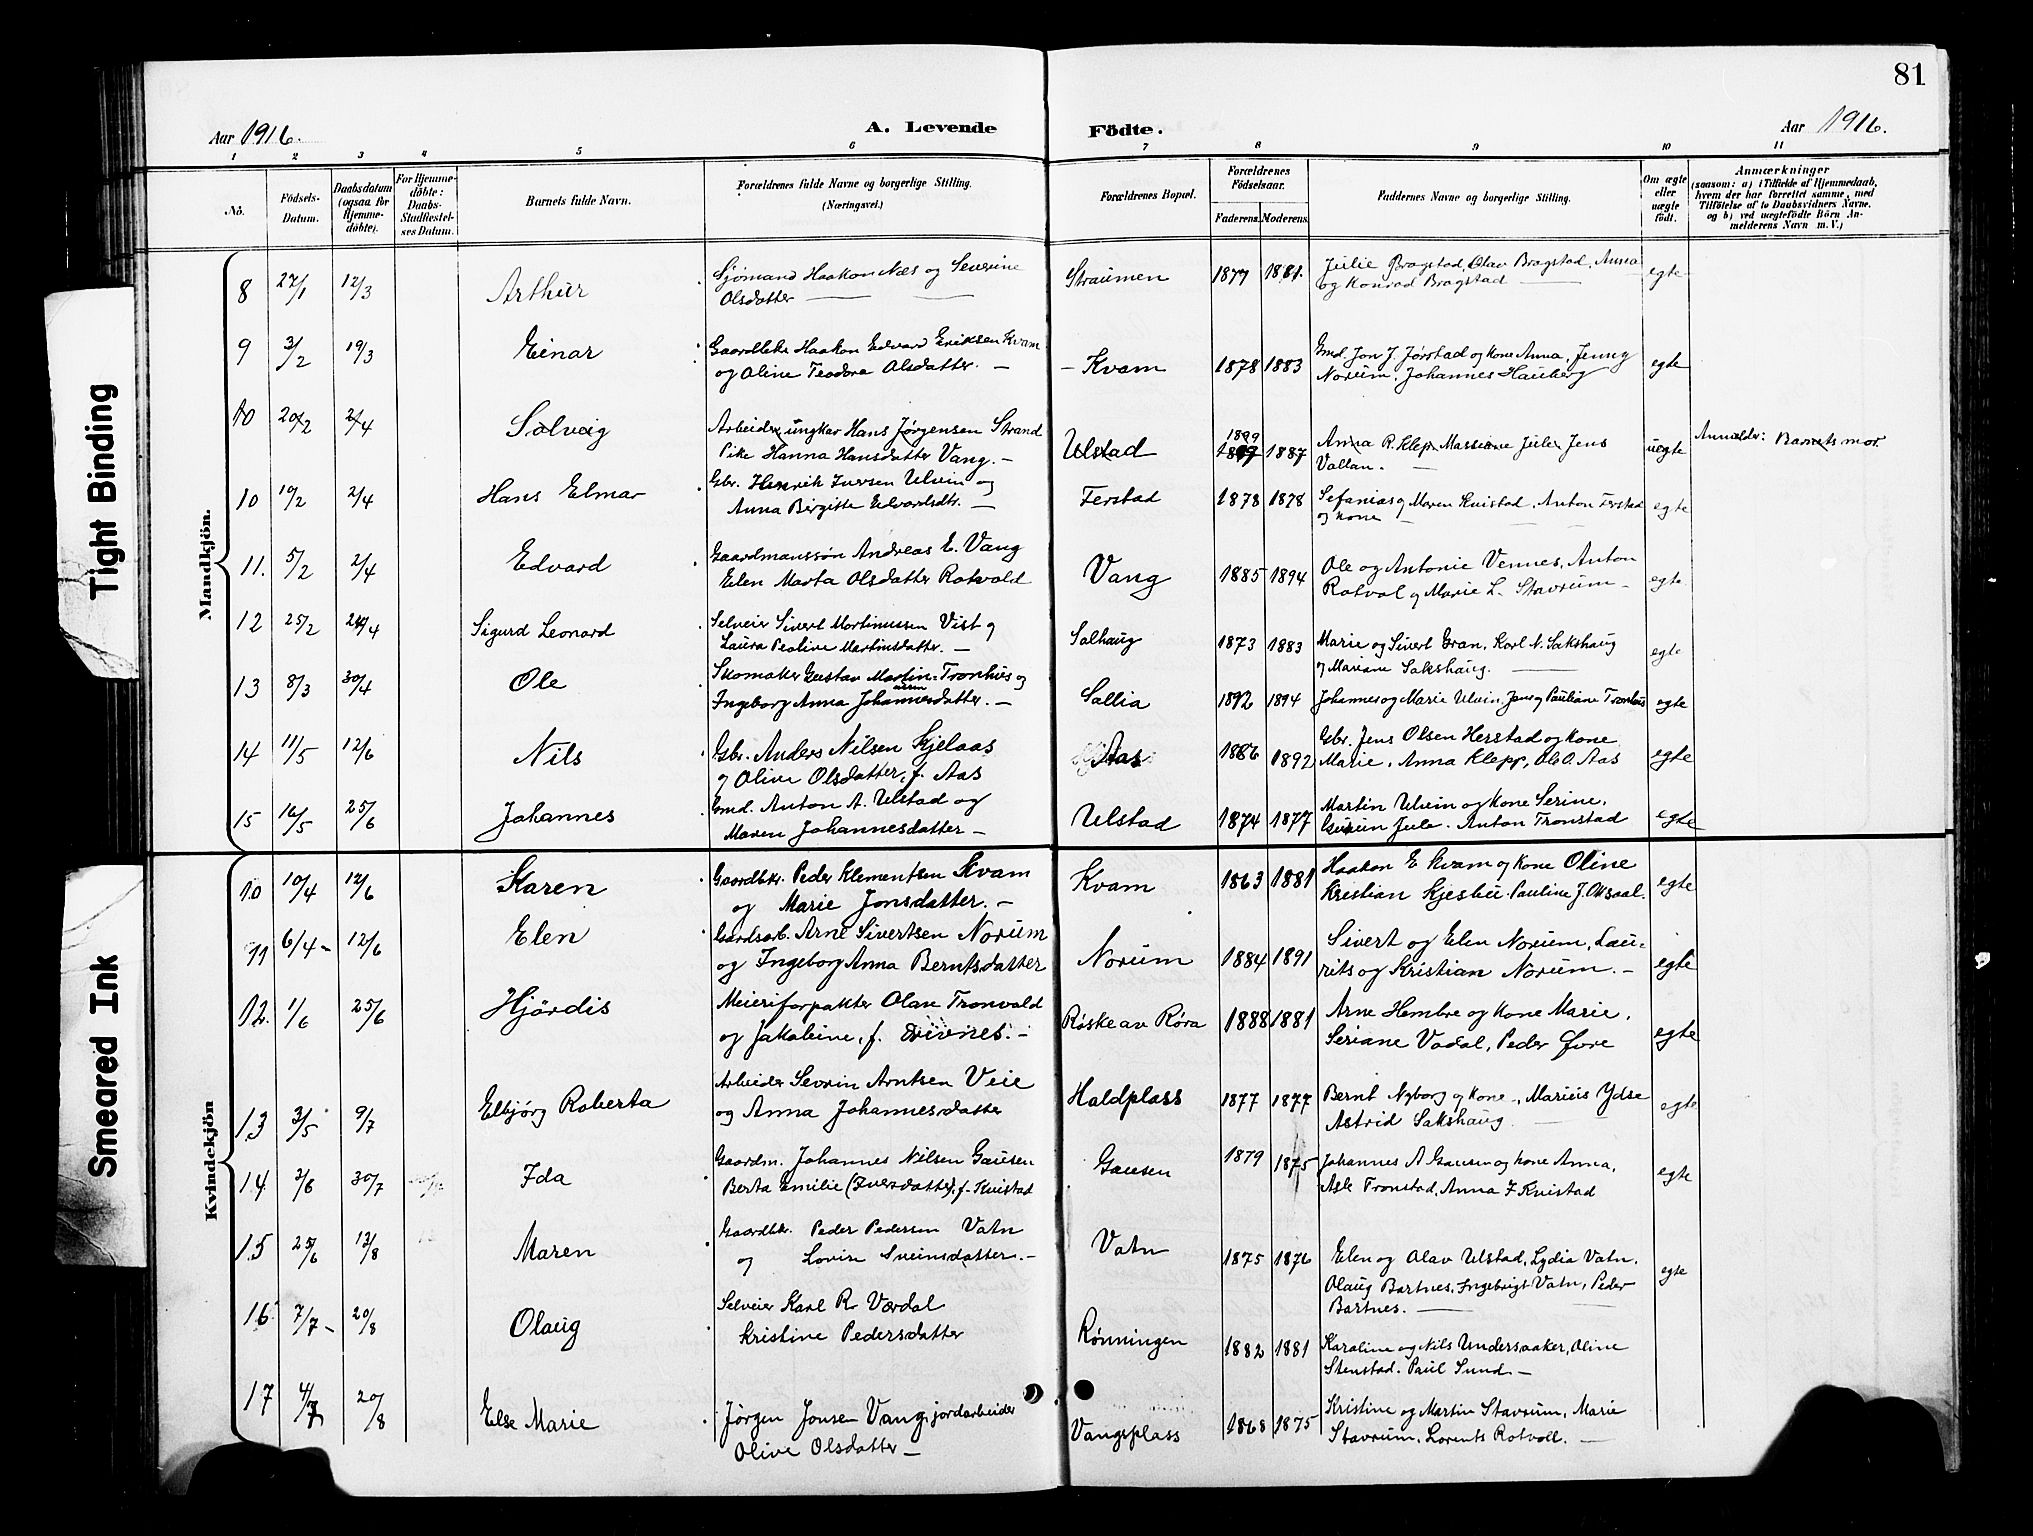 81
Aar 1916.
A. Levende
Födte.
Aar 1916.
1 2 3 4 5 6 7 8 9 10 11
No.
Födsels-
Datum.
Daabsdatum
(ogsaa for
Hjemme-
døbte).
For Hjemme-
døbte:
Daabs-
Stadfæstel-
ses Datum.
Barnets fulde Navn.
Forældrenes fulde Navne og borgerlige Stilling.
(Næringsvei.)
Forældrenes Bopæl.
Forældrenes
Födselsaar.
Faderens. Moderens.
Faddernes Navne og borgerlige Stilling.
Om ægte
eller
uægte
født.
Anmærkninger
(saasom: a) i Tilfælde af Hjemmedaab,
hvem der har forrettet samme, med
Tilföielse af to Daabsvidners Navne,
og b) ved uægtefödte Börn An-
melderens Navn m. V.)
Mandkjön.
8 27/1 12/3 Arthur Sjømand Haakon Næs og Severine
Olsdatter — Straumen 1877 1881. Julie Bragstad, Olav Bragstad, Anna
og Konrad Bragstad — egte
9 3/2 19/3 Einar Gaardbkr Haakon Edvard Eriksen Kvam
og Oline Teodora Olsdatter. — Kvam 1878 1883 Gmd. Jon J. Jørstad og kone Anna, Jenny
Norum. Johannes Hauberg egte
10 20/2 2/4 Solveig Arbeider ungkar Hans Jørgensen Strand
Pike Hanna Hansdatter Vang. — Ulstad 1899 1887 Anna R. Klepp Massiane Jule, Jens
Vollan. — uegte Anmelder: Barnets mor.
10 10/2 2/4 Hans Elmar Gbr. Henrik Iversen Ulvin og
Anna Birgitte Edvardsdtr. — Ferstad 1878 1878 Sefanias og Maren Kvistad, Anton Ferstad
og kone — egte
11. 5/2 2/4 Edvard Gaardmanssøn Andreas E. Vang
Elen Marta Olsdatter Rotvold Vang 1885 1894 Ole og Antonie Vennes, Anton
Rotvol og Marie L. Stavrum — egte
12 25/2 24/4 Sigurd Leonard Selveier Sivert Martinussen Vist og
Laura Peoline Martinsdatter. — Salhaug 1873 1883 Marie og Sivert Gran, Karl N. Sakshaug
og Mariane Sakshaug. — egte
13 8/3 30/4 Ole Skomaker Gustav Martin Tronhus og
Ingeborg Anna Johannesdatter. — Sallia 1892 1894 Johannes og Marie Ulvin, Jens og Pauline Tronhus egte
14 11/5 12/6 Nils Gbr. Anders Nilsen Kjelaas
og Olive Olsdatter, f. Aas Aas 1886 1892 Gbr. Jens Olsen Herstad og kone
Marie, Anna Klepp, Ol O. Aas egte
15 16/5 25/6 Johannes Gmd. Anton A. Ulstad og
Maren Johannesdatter — Ulstad 1874 1877 Martin Ulvin og kone Serine,
Gurun Jule. Anton Tronstad egte
Kvindekjön
10 10/4 12/6 Karen Gaardbkr. Peder Klementsen Kvam
og Marie Jonsdatter. — Kvam 1863 1881 Haakon E Kvam og kone Oline
Kristian Kjesbu. Pauline J. egte
11 6/4 — 12/6 Elen Gardsarb. Arne Sivertsen Norum
og Ingeborg Anna Berntsdatter Norum 1884 1891 Sivert og Elen Norum, Lau-
rits og Kristian Norum. — egte
12. 1/6 25/6 Hjördis Meieriforpakter Olav Tronvald
og Jakobine, f. Røske av Røra 1888 1881 Arne Hembre og kone Marie,
Seriane Vadal, Peder Øvre egte
13 3/5 9/7 Elbjørg Roberta Arbeider Sevrin Arntsen Veie
og Anna Johannesdatter Haldplass 1877 1877 Bernt Nyborg og kone, Marius Ydse
Astrid Sakshaug — egte
14 3/6 30/7 Ida Gaardm. Johannes Nilsen Gausen
Berta Emilie (Iversdatter), f. Kvistad Gausen 1879 1875 Johannes A Gausen og kone Anna,
Asle Tronstad, Anna I Kvistad egte
15 25/6 13/8 Maren Gaardbkr. Peder Pedersen Vatn
og Lovise Sveinsdatter. — Vatn 1875 1876 Elen og Olav Ulstad, Lydia Vatn,
Olaug Bartnes, Ingebrigt Vatn, Peder
Bartnes. — egte
16 7/7 — 20/8 Olaug Selveier Karl R. Værdal
Kristine Pedersdatter Rønningen 1882 1881 Karoline og Nils Undersaaker, Oline
Stenstad. Paul Sund —
17 4/7 20/8 Else Marie Jørgen Jonsen Vang, jordarbeider
Olive Olsdatter — Vangsplass 1868 1875 Kristine og Martin Stavrum, Marie
Stavrum, Lorents Rotvoll. —
Tight Binding
Smeared Ink